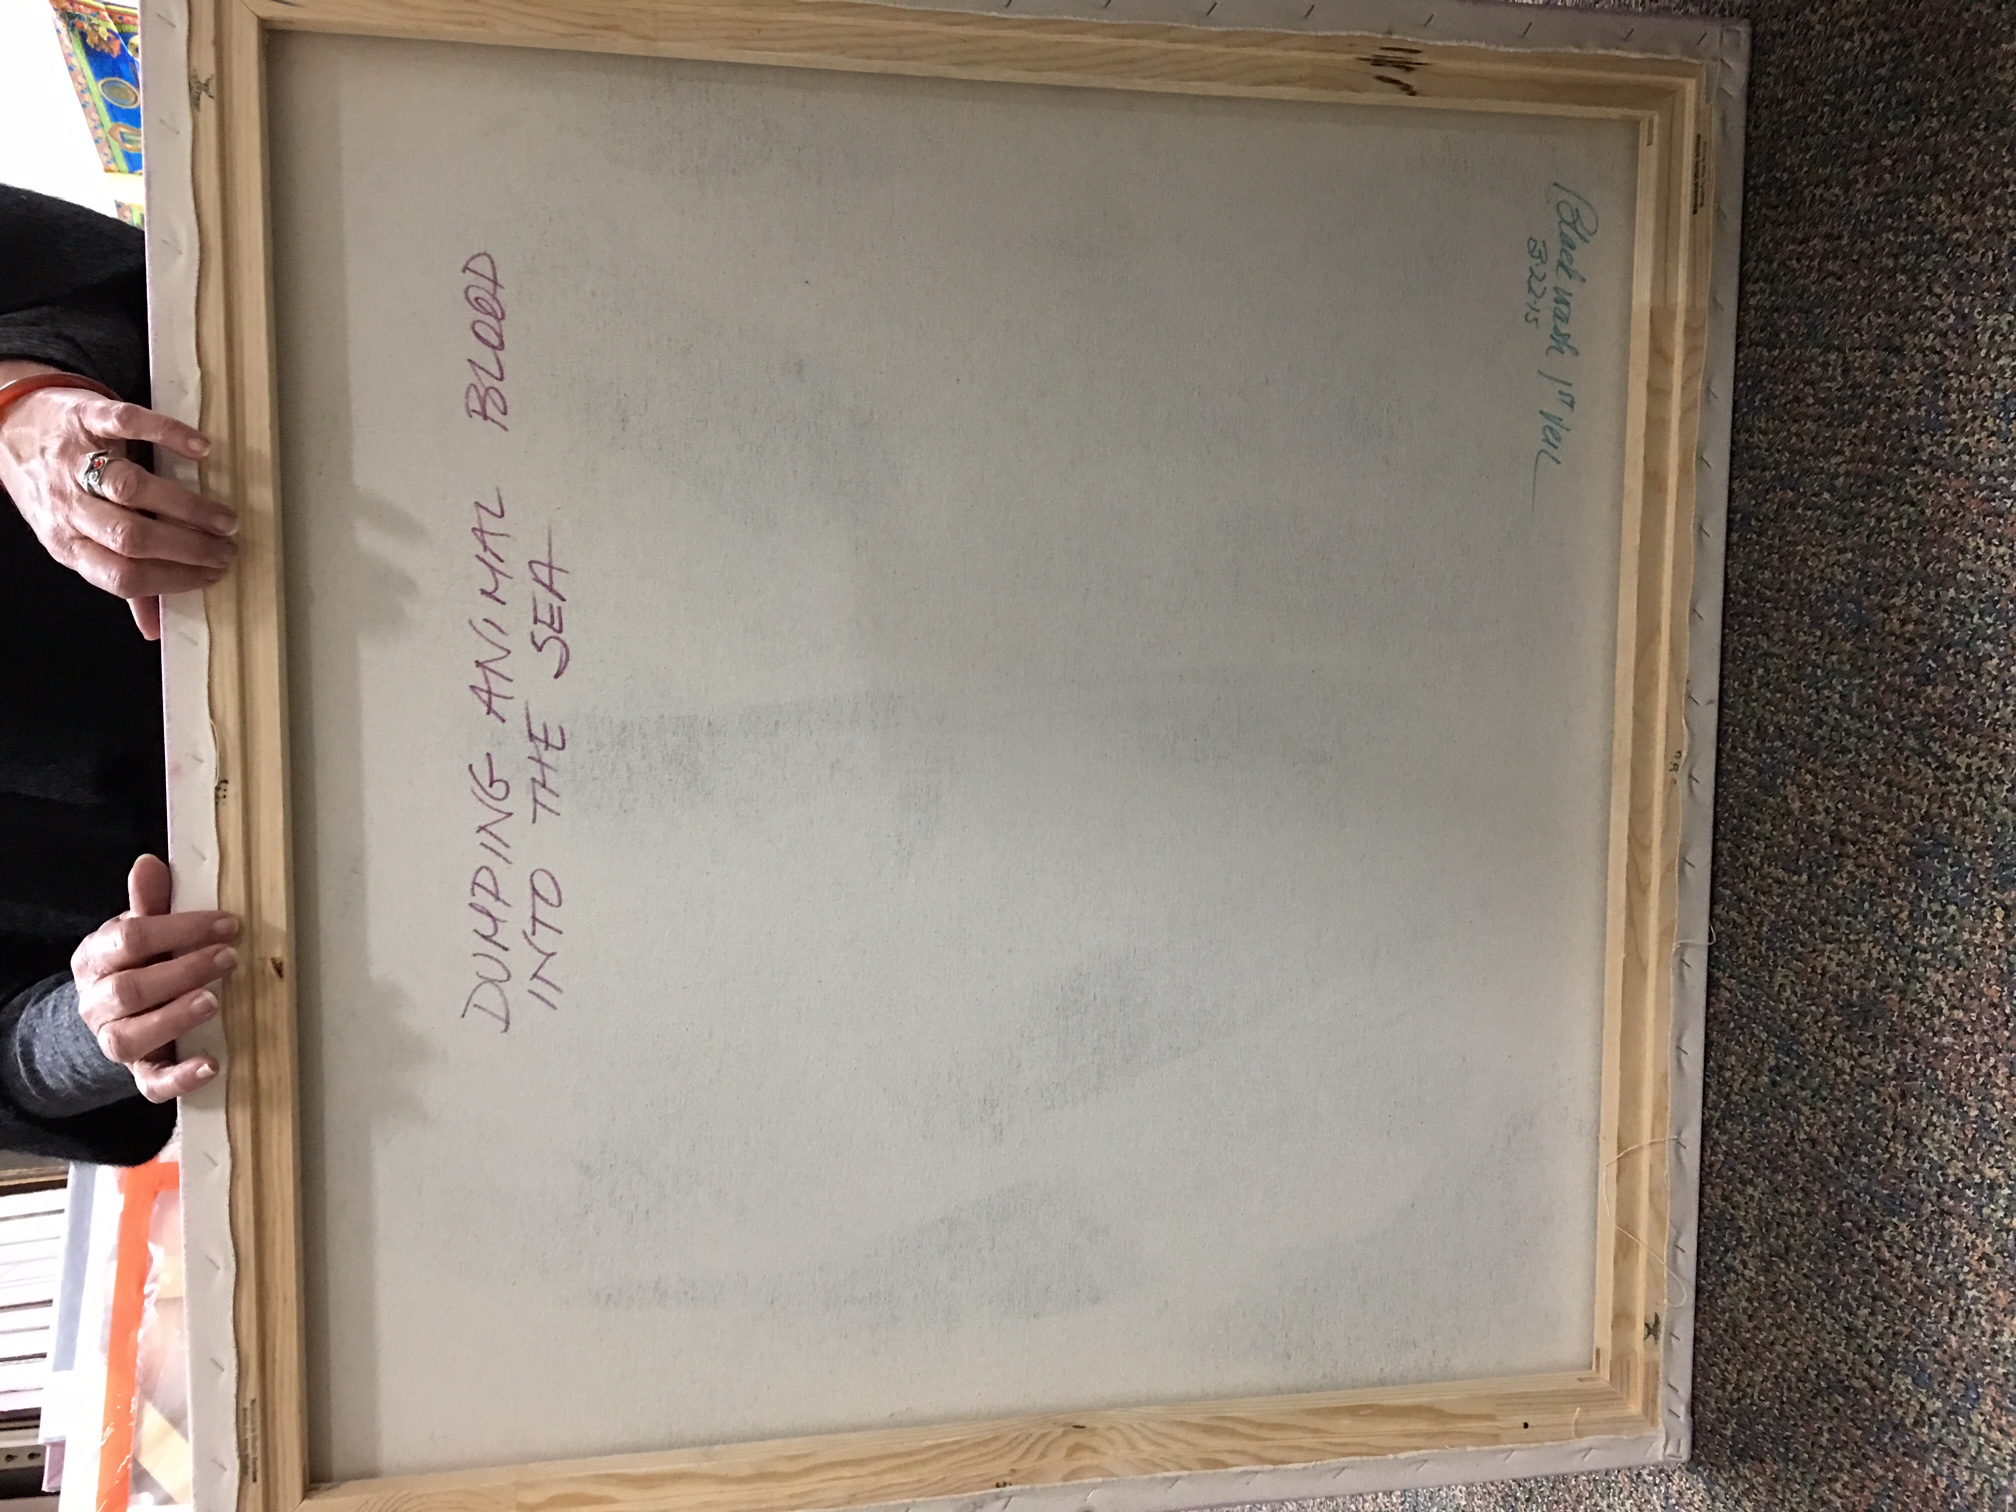 DUMPING ANIMAL BLOOD
INTO THE SEA
Black wash 1st Ver
3·22·15